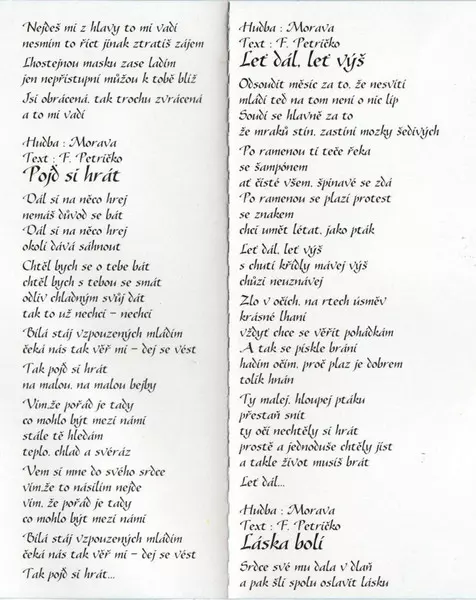 Nejdeš mi z hlavy to mi vadí
nesmím to říct jinak ztratíš zájem
Lhostejnou masku zase ladím
jen nepřístupní můžou k tobě blíž
Jsi obrácená, tak trochu zvrácená
a to mi vadí
Hudba : Morava
Text : F. Petričko
Pojď si hrát
Dál si na něco hrej
nemáš důvod se bát
Dál si na něco hrej
okolí dává sáhnout
Chtěl bych se o tebe bát
chtěl bych s tebou se smát
odliv chladným svůj dát
tak to už nechci - nechci
Bílá stáj vzpouzených mládím
čeká nás tak věř mi - dej se vést
Tak pojď si hrát
na malou, na malou bejby
Vím,že pořád je tady
co mohlo být mezi námi
stále tě hledám
teplo, chlad a svéráz
Vem si mne do svého srdce
vím,že to násilím nejde
vím, že pořád je tady
co mohlo být mezi námi
Bílá stáj vzpouzených mládím
čeká nás tak věř mi - dej se vést
Tak pojď si hrát...
Hudba : Morava
Text : F. Petričko
Leť dál, leť výš
Odsoudit měsíc za to, že nesvítí
mládí teď na tom není o nic líp
Soudí se hlavně za to
že mraků stín, zastíní mozky šedivých
Po ramenou ti teče řeka
se šampónem
ať čisté všem, špinavé se zdá
Po ramenou se plazí protest
se znakem
chci umět létat, jako pták
Leť dál, leť výš
s chutí křídly mávej výš
chůzi neuznávej
Zlo v očích, na rtech úsměv
krásné lhaní
vždyť chce se věřit pohádkám
A tak se pískle brání
hadím očím, proč plaz je dobrem
tolik hnán
Ty malej, hloupej ptáku
přestaň snít
ty oči nechtěly si hrát
prostě a jednoduše chtěly jíst
a takle život musíš brát
Leť dál...
Hudba : Morava
Text : F. Petričko
Láska bolí
Srdce své mu dala v dlaň
a pak šli spolu oslavit lásku